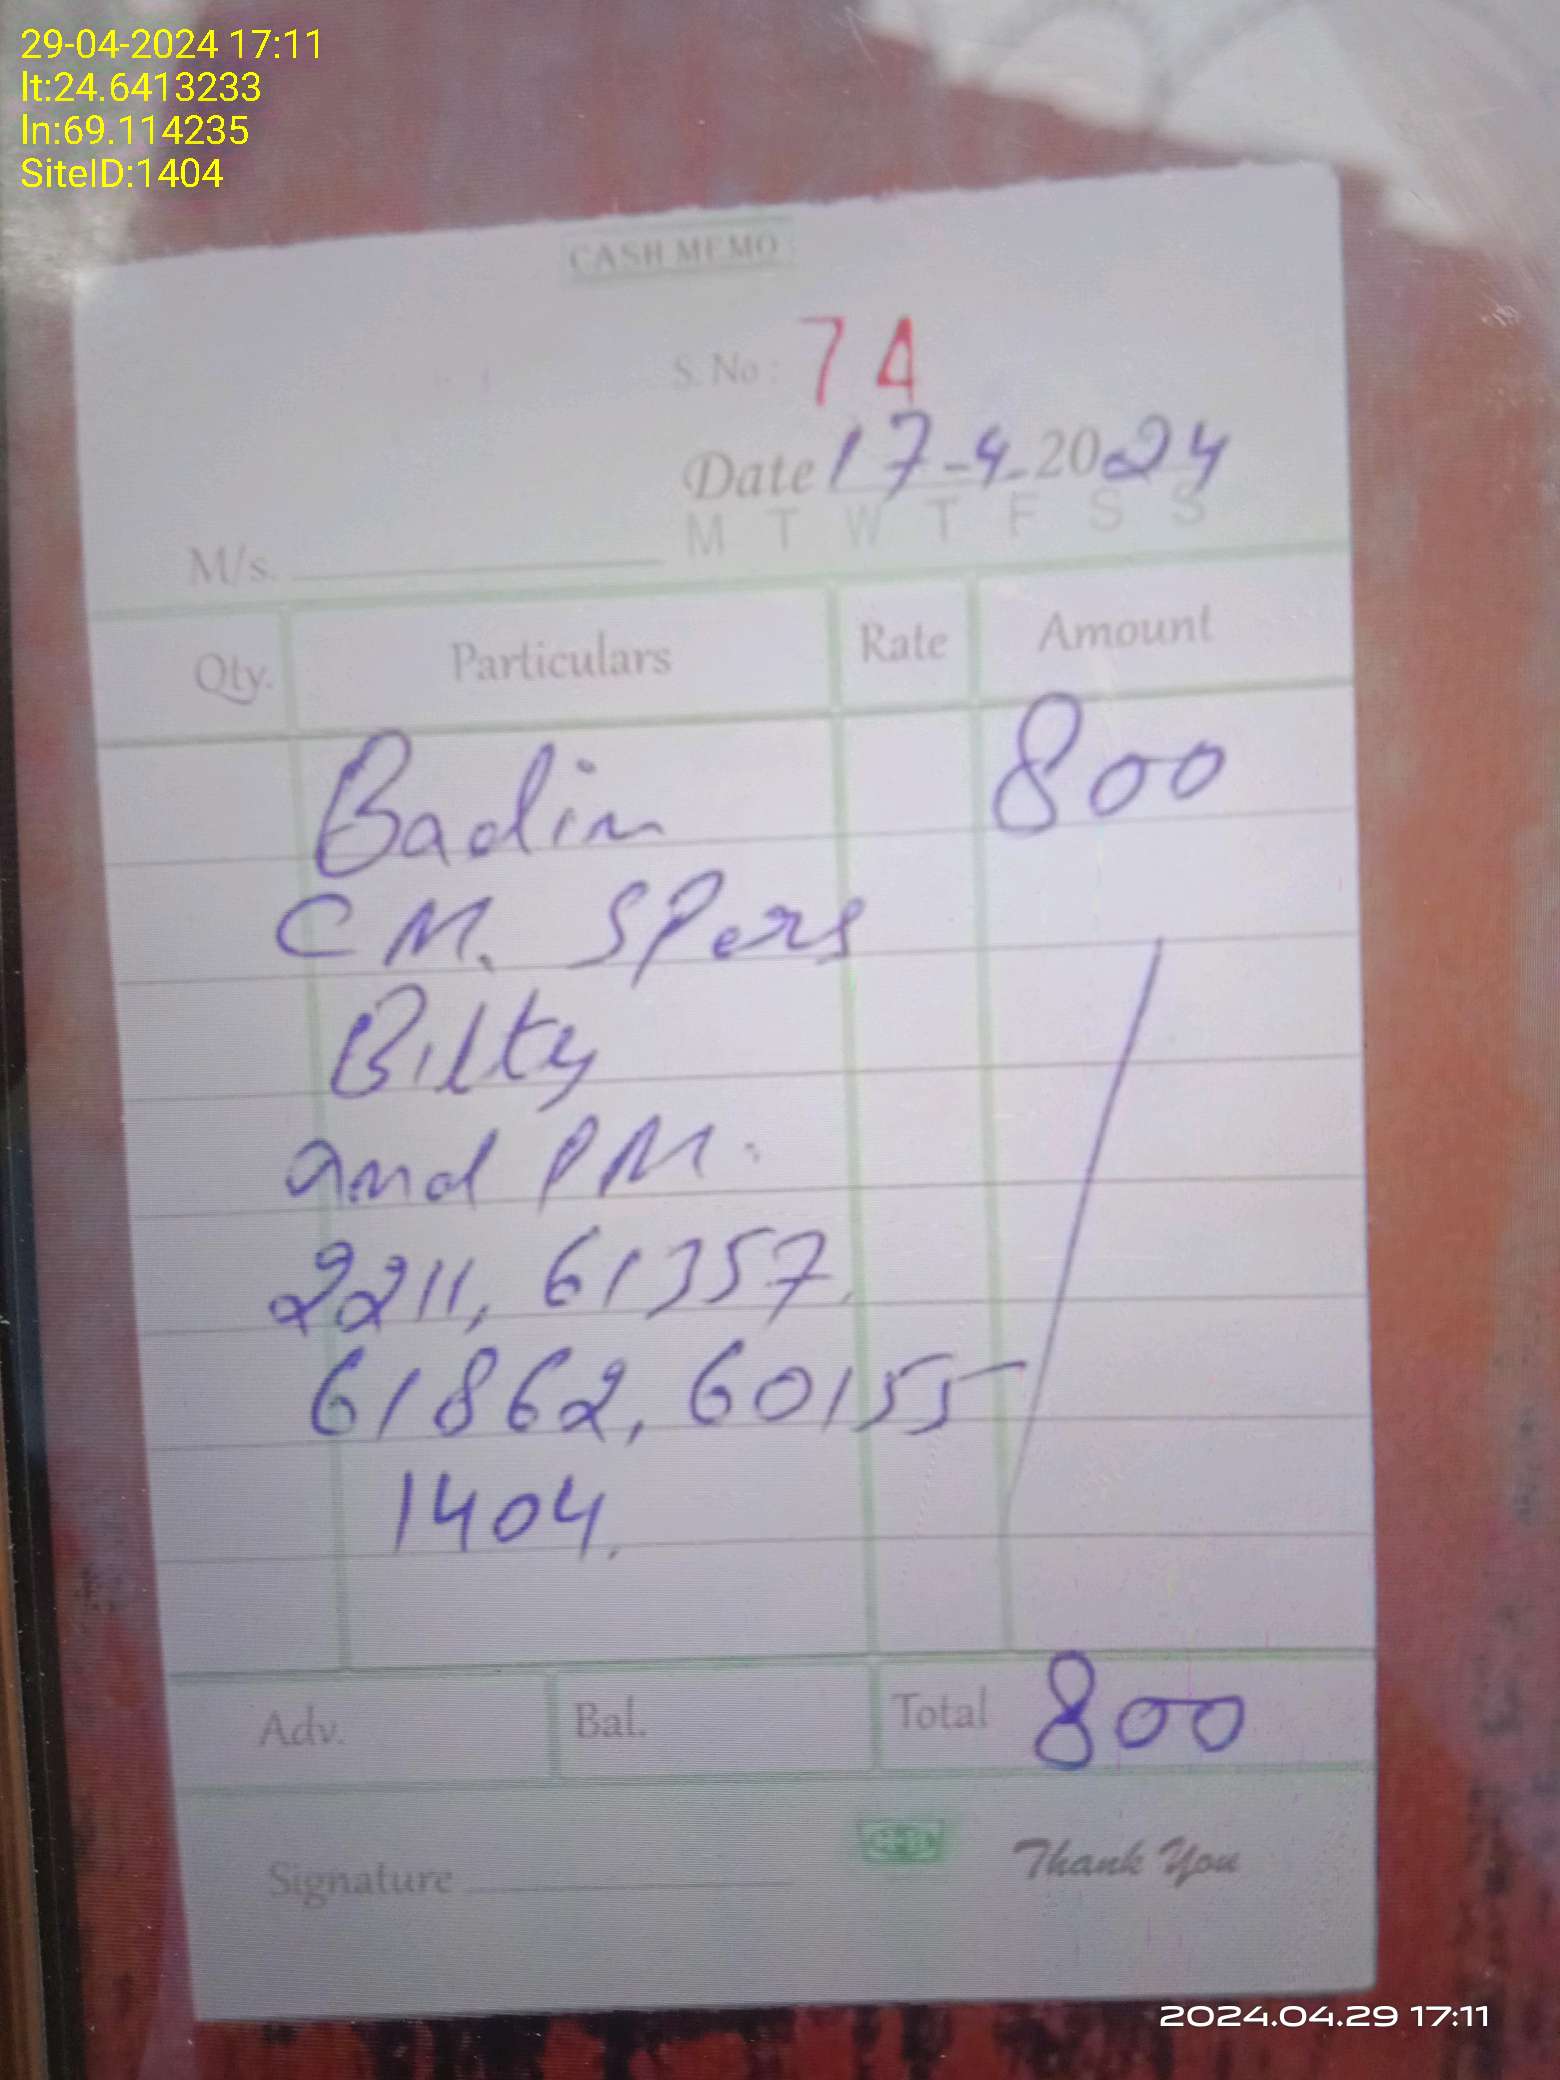 29-04-2024 17:11
lt:24.6413233
ln:69.114235
SiteID:1404
CASH MEMO
S. No : 74
Date 17-4-2024
M T W T F S S
M/s.
Qty. Particulars Rate Amount
Badin 800
CM. SPers
Bilty
and PM.
2211, 61357,
61862, 60155
1404.
Adv. Bal. Total 800
Signature Thank You
2024.04.29 17:11